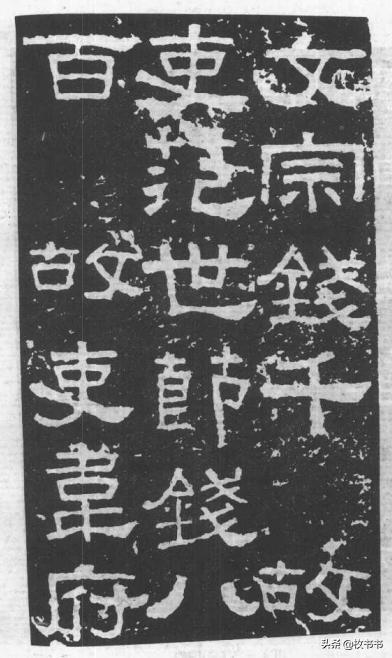 文宗錢千 故
吏范世節錢八
百 故吏韋府
头条@牧书书